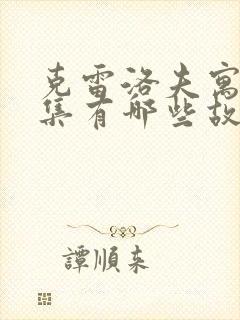 克雷洛夫寓
集有哪些故
譚順来